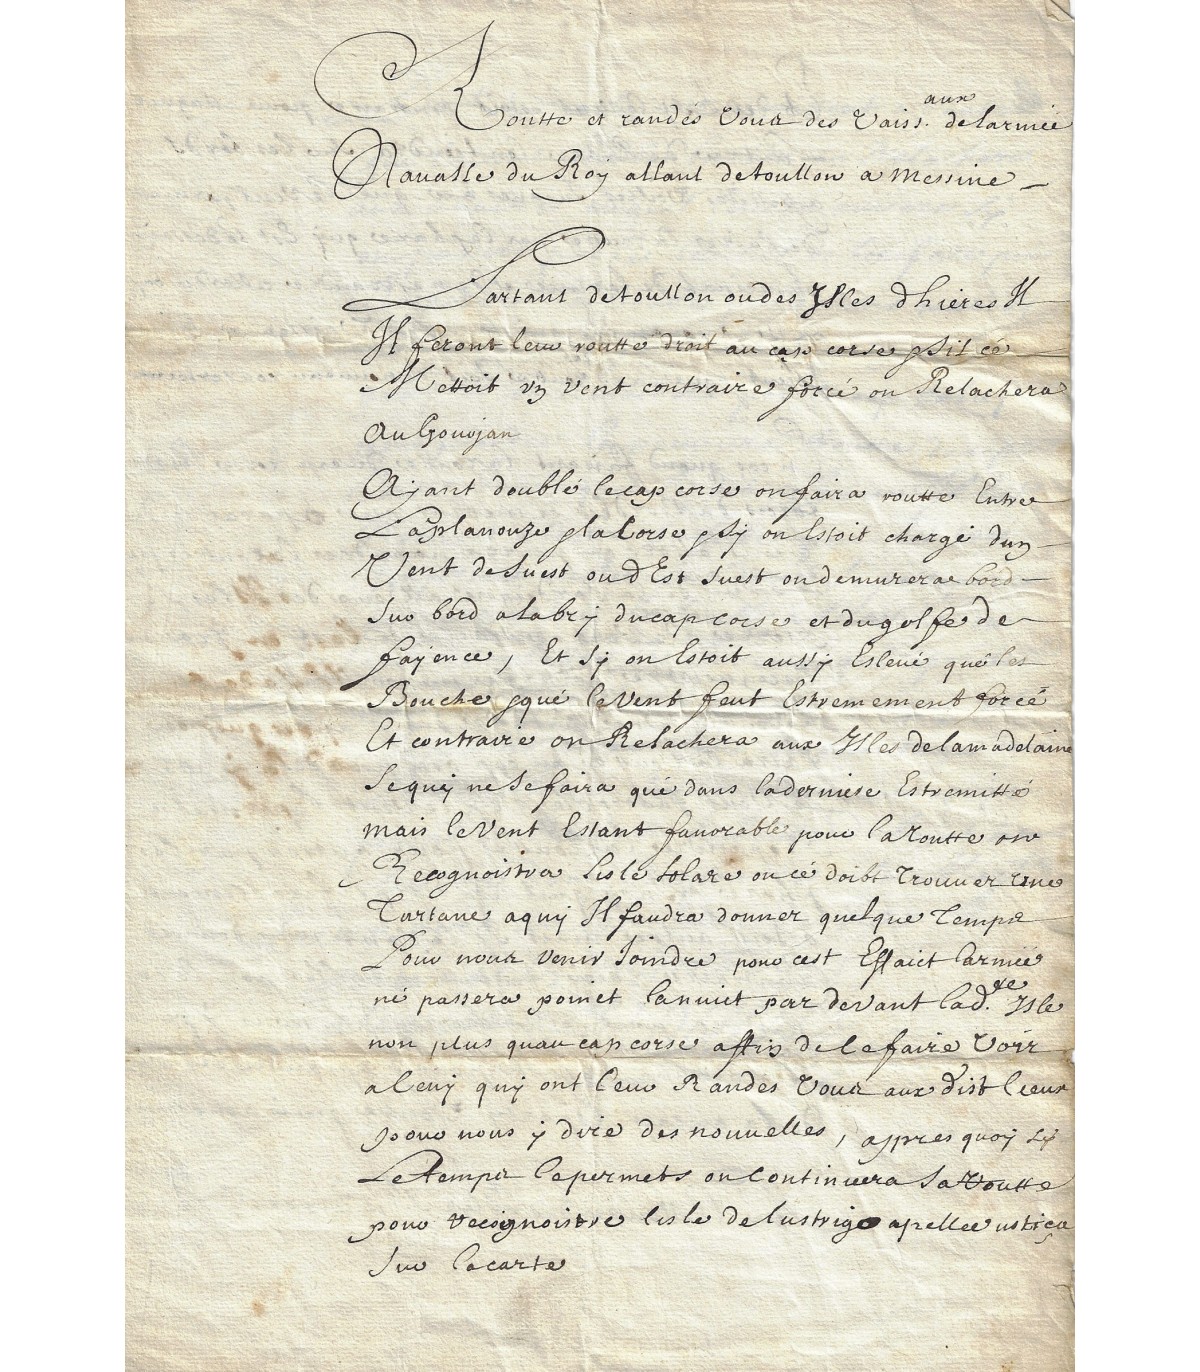 Routte et randés vous des vaiss.aux delarmée
Navalle du Roy allant detoullon a Messine
Partant detoullon oudes Isles dhieres Il
Il feront leur routte droit au cap corse & sil cé
Mettoit un vent contraire forcé on Relachera
Au Gourjan
Ayant doublé lecap corse on faira routte Entre
Laplanouze & lacorse & sy on Estoit chargé dun
Vent desuest ou dEst suest on demurera bord
sur bord alabry ducap corse et dugolfe de
fayence, Et sy on Estoit aussy Eslevé qué les
Bouche & qué levent feut Estrememement forcé
Et contraire on Relachera aux Isles delamadelaine
sequy ne se faira qué dans laderniere Estremitté
mais levent Estant favorable pour laroutte on
Recognoistra lisle solare ou cé doibt trouver une
Tartane aquy Il faudra donner quelque temps
Pour nous venir Joindre pour cest Effaict larmée
né passera poinct lanuict par devant lad.te Isle
non plus quau cap corse affin de le faire voir
a ceuy quy ont leur Randes vous aux dist lieux
pour nous y dire des nouvelles, appres quoy sy
Letemps lepermets on continuera sa routte
pour recognoistre lisle delustrigo apellee ustica
sur lacarte